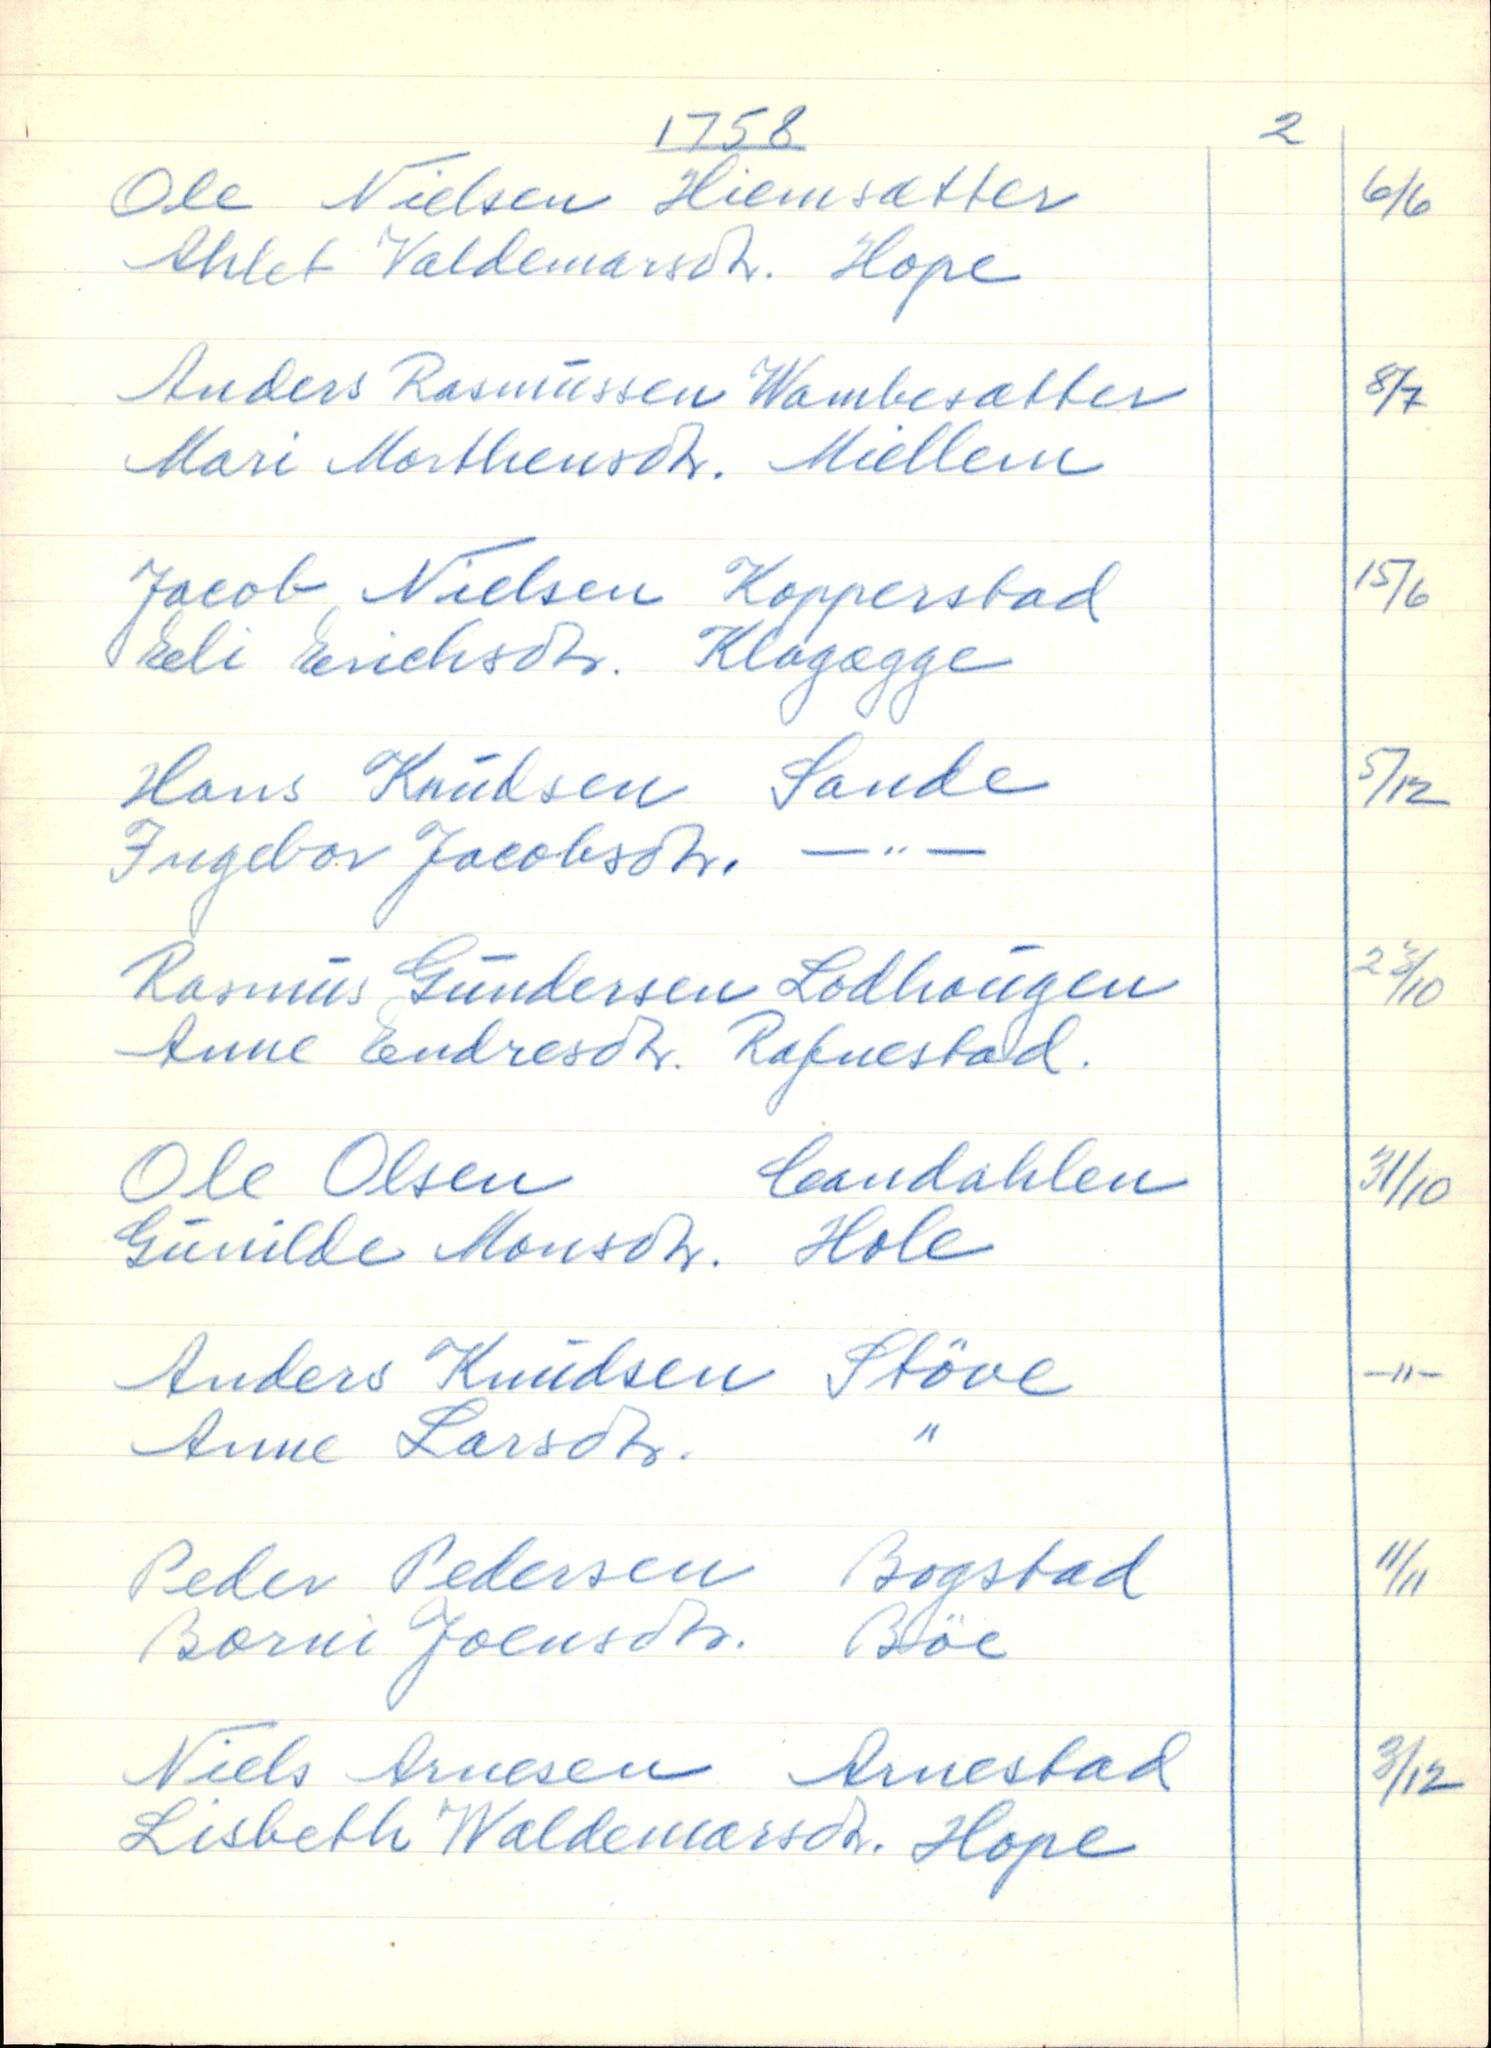 1758 2
Ole Nielsen Hiemsætter 6/6
Ahlet Valdemarsdtr. Hope
Anders Rasmussen Wambesætter 8/7
Mari Morthensdtr. Miellem
Jacob Nielsen Kopperstad 15/6
Eli Erichsdtr. Klogægge
Hans Knudsen Sande 5/12
Ingebor Jacobsdtr. —"—
Rasmus Gundersen Lodhougen 23/10
Anne Endresdtr. Rafnestad.
Ole Olsen Candahlen 31/10
Gunilde Monsdtr. Hole
Anders Knudsen Stöve —"—
Anne Larsdtr. "
Peder Pedersen Bogstad 11/11
Borni Joensdtr. Böe
Niels Arnesen Arnestad 3/12
Lisbeth Waldemarsdtr. Hope